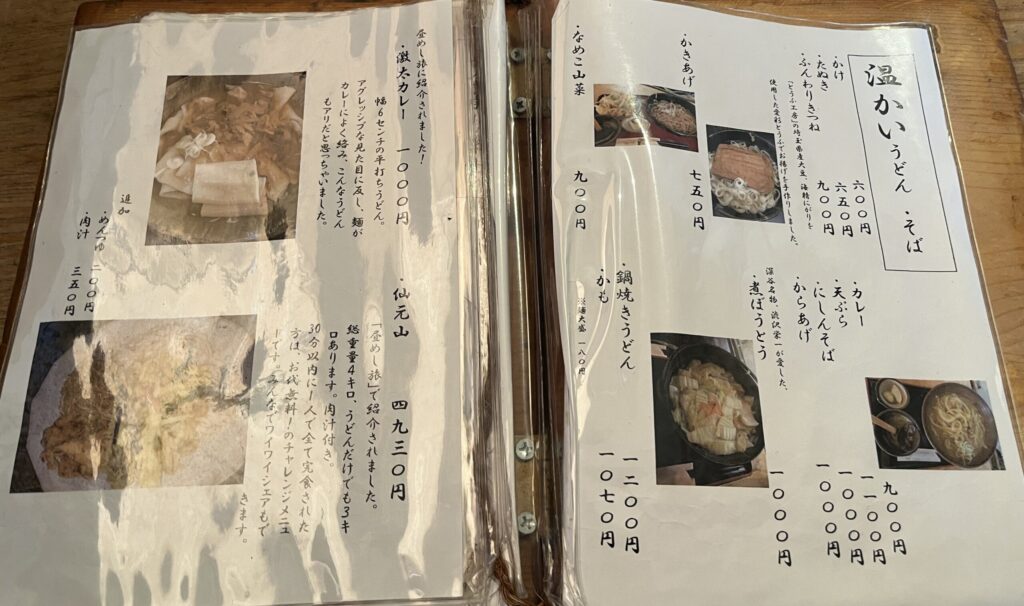 温かいうどん ・そば
・かけ 六〇〇円
・たぬき 六五〇円
・ふんわりきつね 九〇〇円
「とうふ工房」の埼玉県産大豆、海精にがりを
使用した愛彩とうふでお揚げを手作りしました。
・かきあげ 七五〇円
・なめこ山菜 九〇〇円
・カレー 九〇〇円
・天ぷら 一一〇〇円
・にしんそば 一〇〇〇円
からあげ 一〇〇〇円
深谷名物、渋沢栄一が愛した、
・煮ぼうとう 一〇〇〇円
・鍋焼きうどん 一二〇〇円
・かも 一〇七〇円
大盛 一八〇円
昼めし旅に紹介されました!
・激太カレー 一〇〇〇円
幅6センチの平打ちうどん。
アグレッシブな見た目に反し、麺が
カレーによく絡み、こんなうどん
もアリだと思っちゃいました。
追加
・めんつゆ 二〇〇円
・肉汁 三五〇円
・仙元山 四九三〇円
「昼めし旅」で紹介されました。
総重量4キロ、うどんだけでも3キ
ロあります。肉汁付き。
30分以内に1人で全て完食された
方は、お代無料!のチャレンジメニュ
ーです。みんなでワイワイシェアもで
きます。